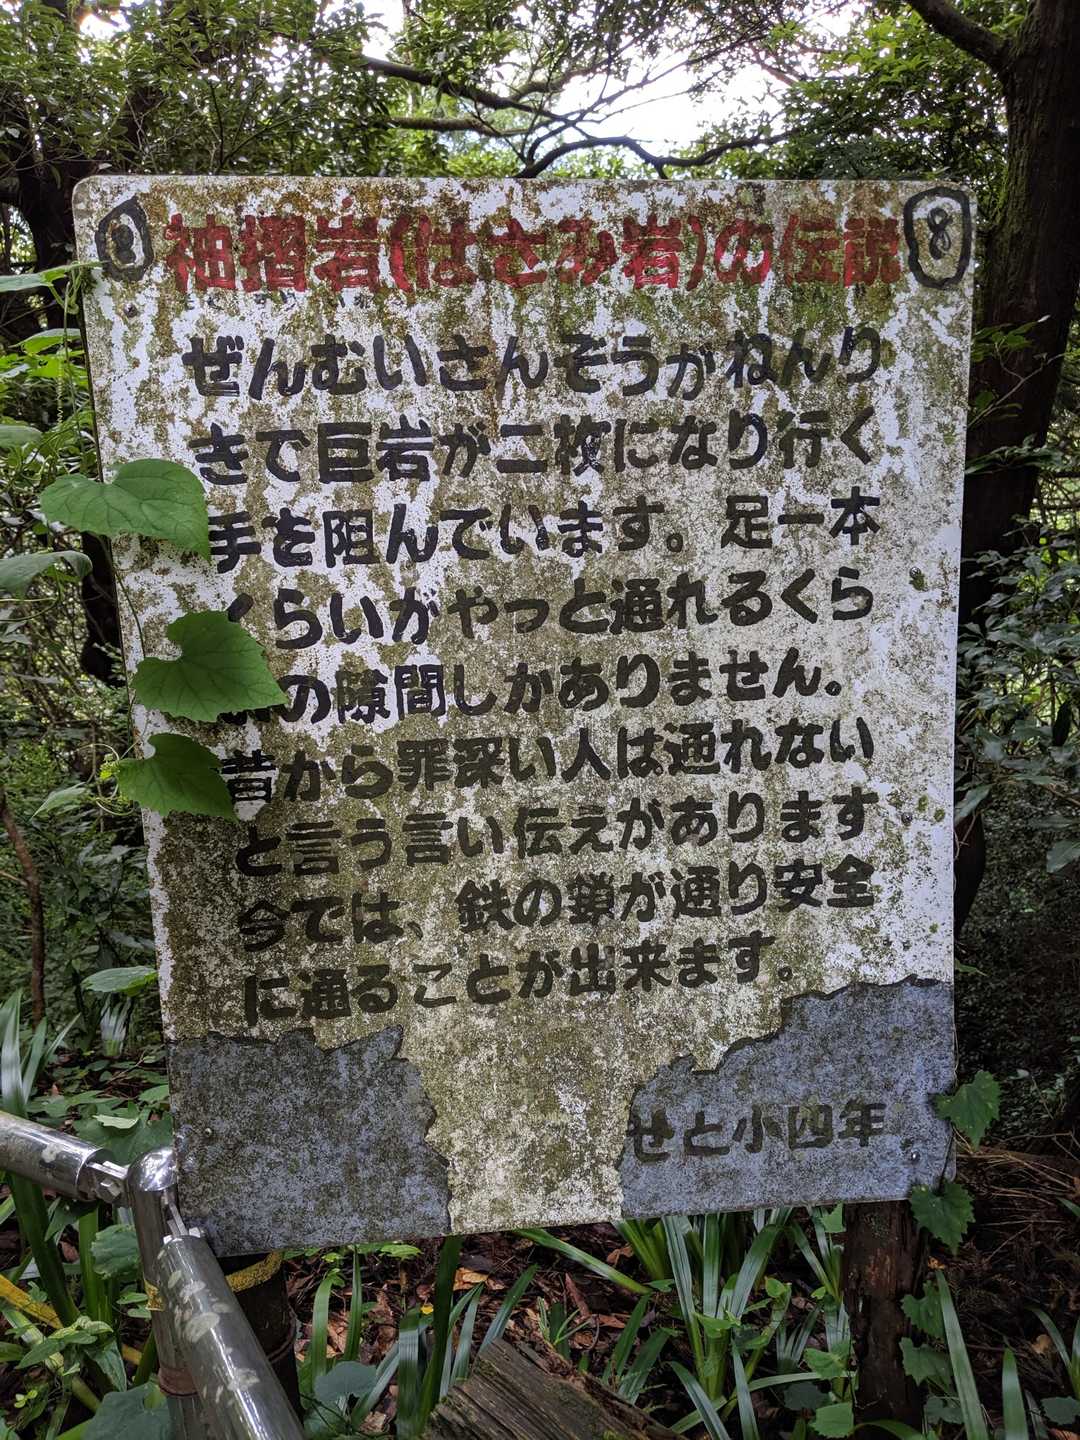 8 袖摺岩(はさみ岩)の伝説 8
ぜんむいさんぞうがねんり
きで巨岩が二枚になり行く
手を阻んでいます。足一本
くらいがやっと通れるくら
の隙間しかありません。
昔から罪深い人は通れない
と言う言い伝えがあります
今では、鉄の鎖が通り安全
に通ることが出来ます。
せと小四年